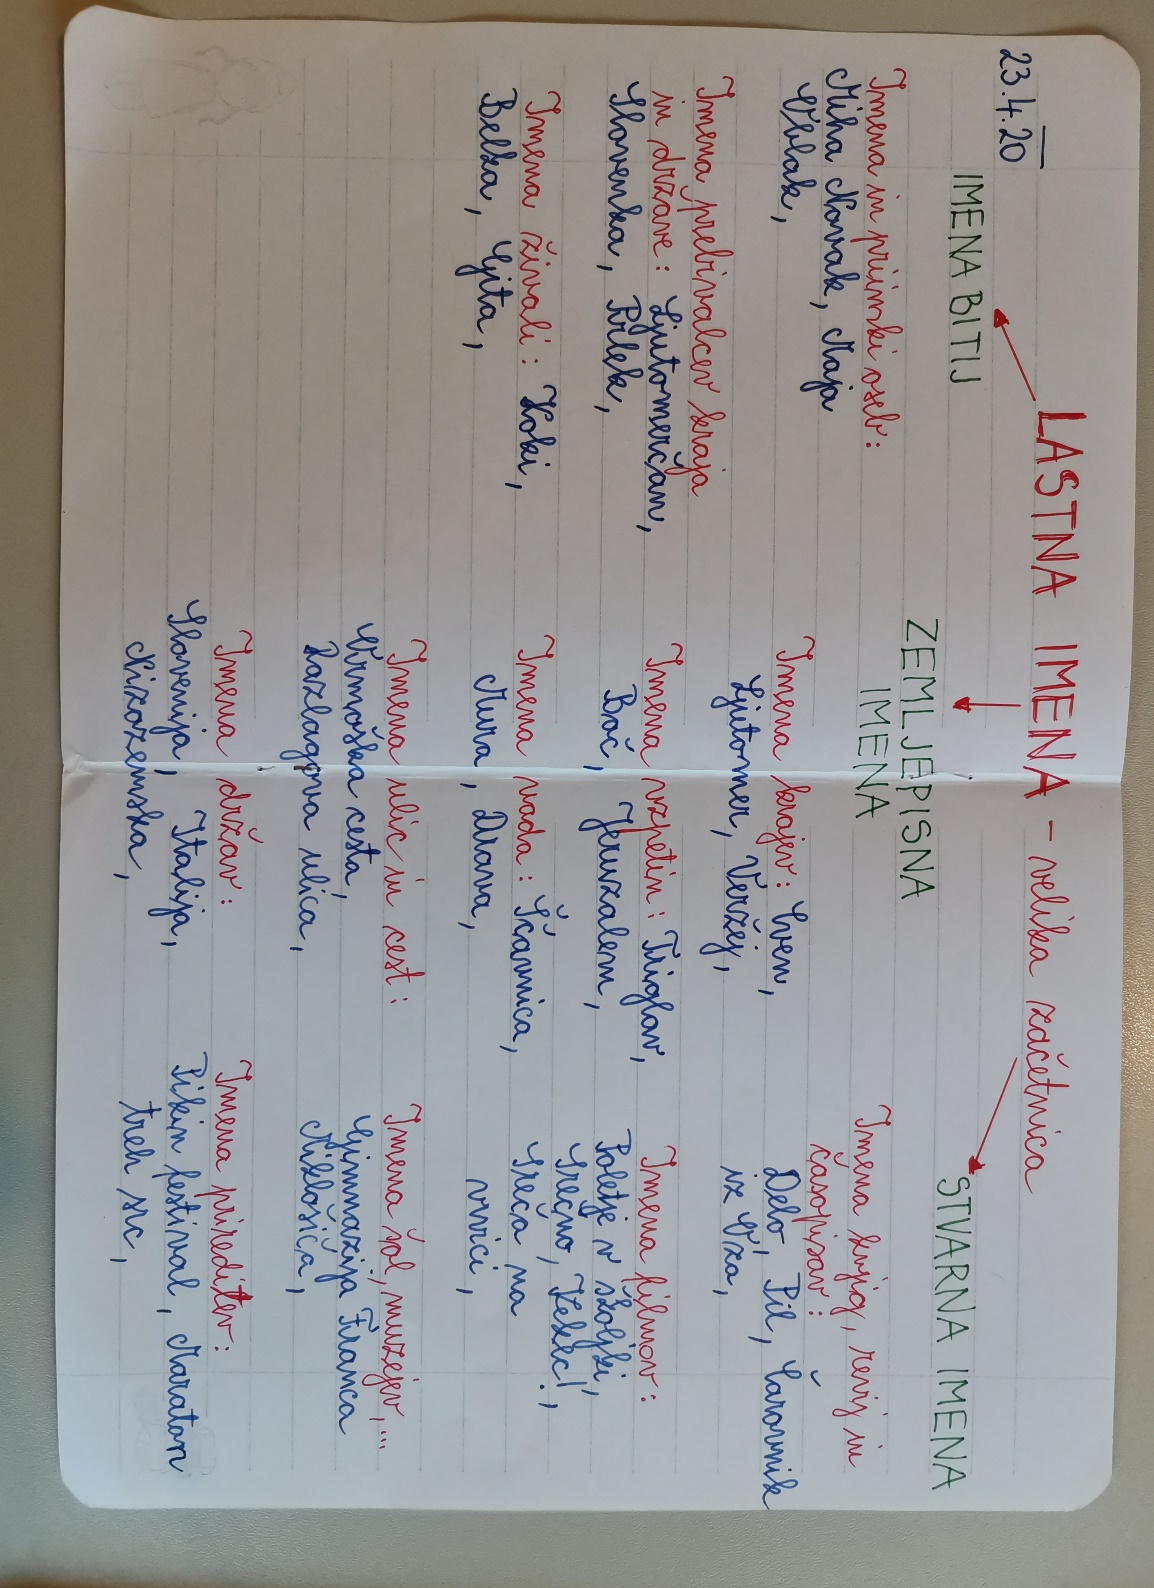 23.4.20
LASTNA IMENA - velika začetnica
IMENA BITIJ
Imena in priimki oseb:
Miha Novak, Maja
Vblak,
Imena prebivalcev kraja
in države: Ljutomerčan,
Slovenka, Prlek,
Imena živali: Koki,
Belka, Gita,
ZEMLJEPISNA
IMENA
Imena krajev: Cven,
Ljutomer, Veržej,
Imena vzpetin: Triglav,
Boč, Jeruzalem,
Imena voda: Ščavnica,
Mura, Drava,
Imena ulic in cest:
Ormoška cesta,
Razlagova ulica,
Imena držav:
Slovenija, Italija,
Nizozemska,
STVARNA IMENA
Imena knjig, revij in
časopisov:
Delo, Pil, Čarovnik
iz Oza,
Imena filmov:
Poletje v školjki,
Srečno, Kekec!,
Sreča na
vrvici,
Imena šol, muzejev,...
Gimnazija Franca
Miklošiča,
Imena prireditev:
Pikin festival, Maraton
treh src,